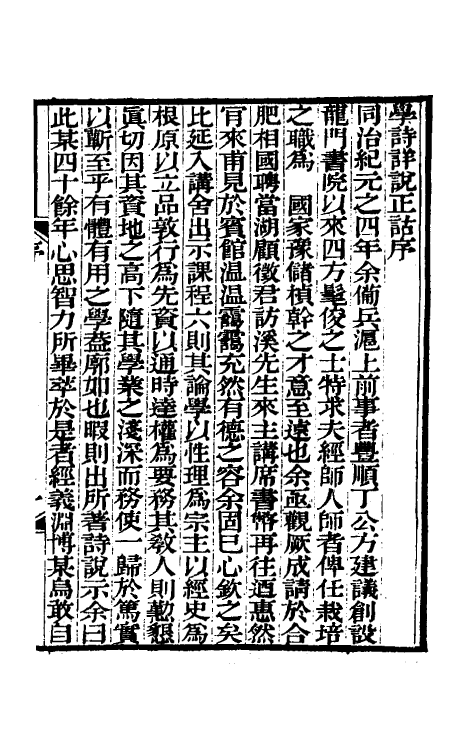 學詩詳說正詁序
同治紀元之四年余備兵滬上前事者豐順丁公方建議創設
龍門書院以來四方髦俊之士特求夫經師人師者俾任栽培
之職為　國家豫儲楨幹之才意至遠也余亟觀厥成請於合
肥相國聘當湖顧徵君訪溪先生來主講席書幣再往迺惠然
肯來甫見於賓館温温靄靄充然有德之容余固已心欽之矣
比延入講舍出示課程六則其論學以性理為宗主以經史為
根原以立品敦行為先資以通時達權為要務其教人則勤懇
真切因其資地之高下隨其學業之淺深而務使一歸於篤實
以蘄至乎有體有用之學葢廓如也暇則出所著詩說示余曰
此某四十餘年心思智力所畢萃於是者經義淵博某烏敢自
序
一